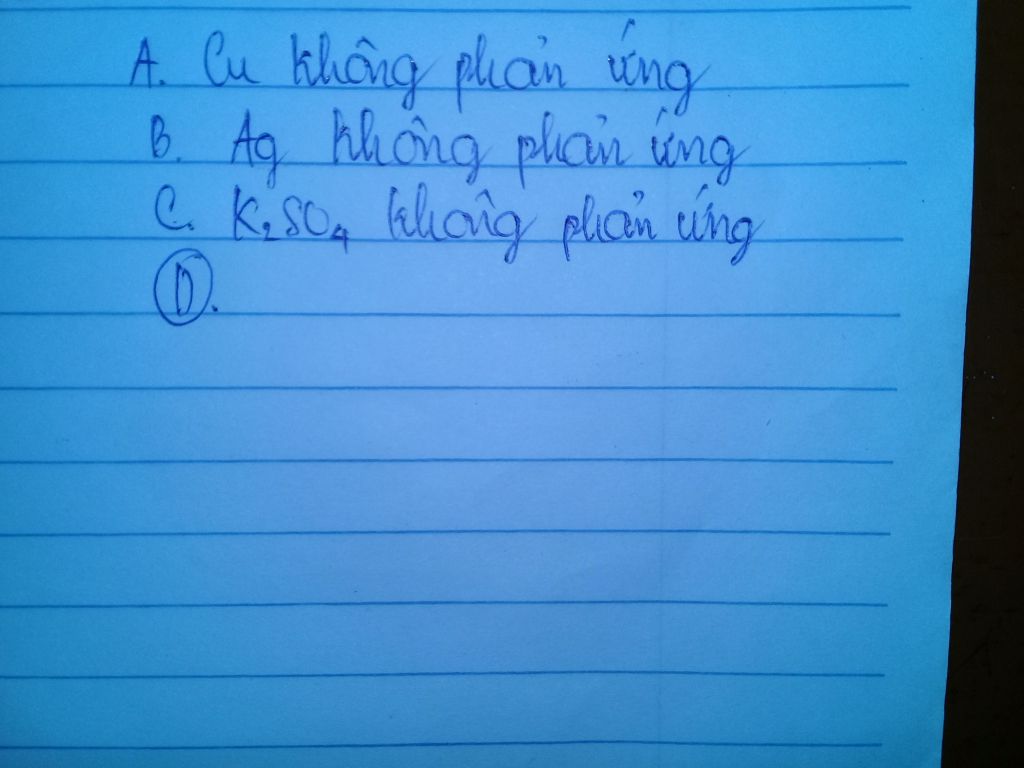 A. Cu không phản ứng
B. Ag không phản ứng
C. K₂SO₄ không phản ứng
D.